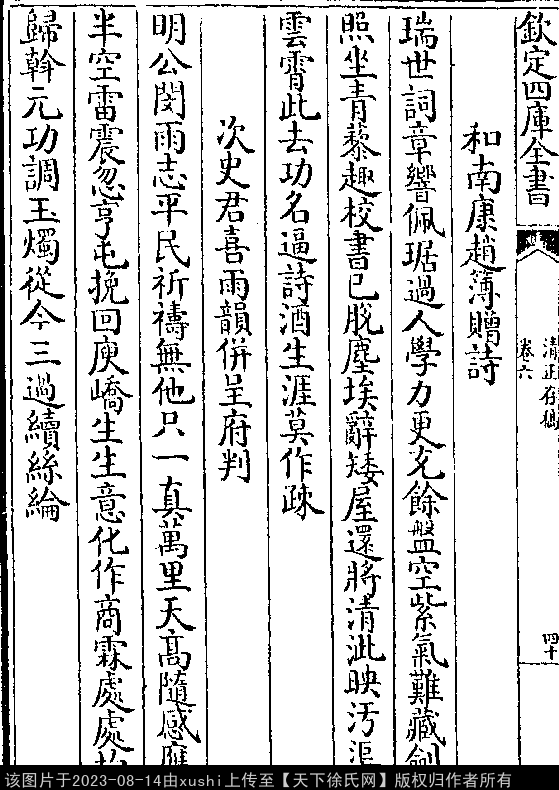 欽定四庫全書
清正存稿
卷六
四十
和南康趙簿贈詩
瑞世詞章響佩琚過人學力更充餘盤空紫氣難藏劍
照坐青藜趣校書已脫塵埃辭矮屋還將清泚映汚渠
雲霄此去功名逼詩酒生涯莫作疎
次史君喜雨韻併呈府判
明公閔雨志平民祈禱無他只一真萬里天髙隨感應
半空雷震忽亨屯挽回庾嶠生生意化作商霖處處
歸斡元功調玉燭從今三過續絲綸
该图片于2023-08-14由xushi上传至【天下徐氏网】版权归作者所有